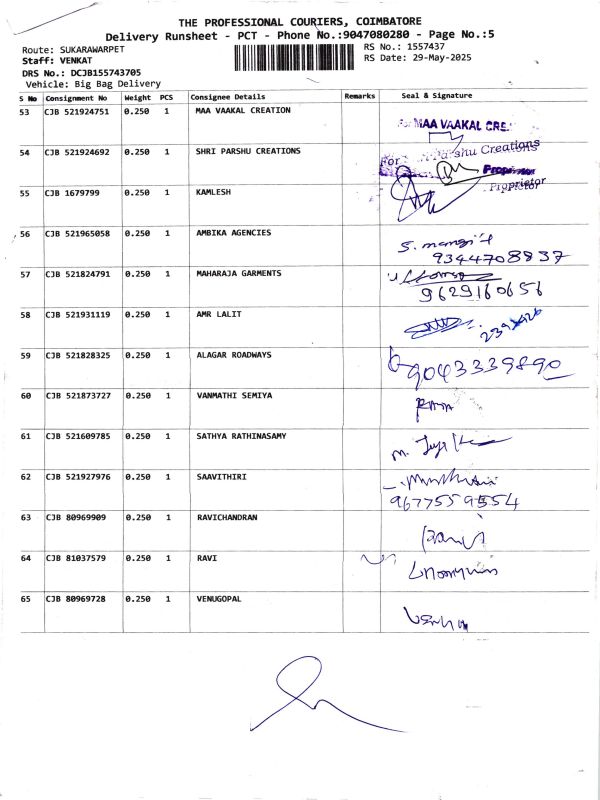 THE PROFESSIONAL COURIERS, COIMBATORE
Delivery Runsheet - PCT - Phone No.:9047080280 - Page No.:5
Route: SUKARAWARPET
RS No.: 1557437
Staff: VENKAT
RS Date: 29-May-2025
DRS No.: DCJB155743705
Vehicle: Big Bag Delivery
S No Consignment No Weight PCS Consignee Details Remarks Seal & Signature
53 CJB 521924751 0.250 1 MAA VAAKAL CREATION
For MAA VAAKAL CRE
54 CJB 521924692 0.250 1 SHRI PARSHU CREATIONS
For Parshu Creations
Proprietor
55 CJB 1679799 0.250 1 KAMLESH
Proprietor
56 CJB 521965058 0.250 1 AMBIKA AGENCIES
9344708837
57 CJB 521824791 0.250 1 MAHARAJA GARMENTS
9629160656
58 CJB 521931119 0.250 1 AMR LALIT
59 CJB 521828325 0.250 1 ALAGAR ROADWAYS
9043339890
60 CJB 521873727 0.250 1 VANMATHI SEMIYA
61 CJB 521609785 0.250 1 SATHYA RATHINASAMY
62 CJB 521927976 0.250 1 SAAVITHIRI
9677559554
63 CJB 80969909 0.250 1 RAVICHANDRAN
64 CJB 81037579 0.250 1 RAVI
65 CJB 80969728 0.250 1 VENUGOPAL